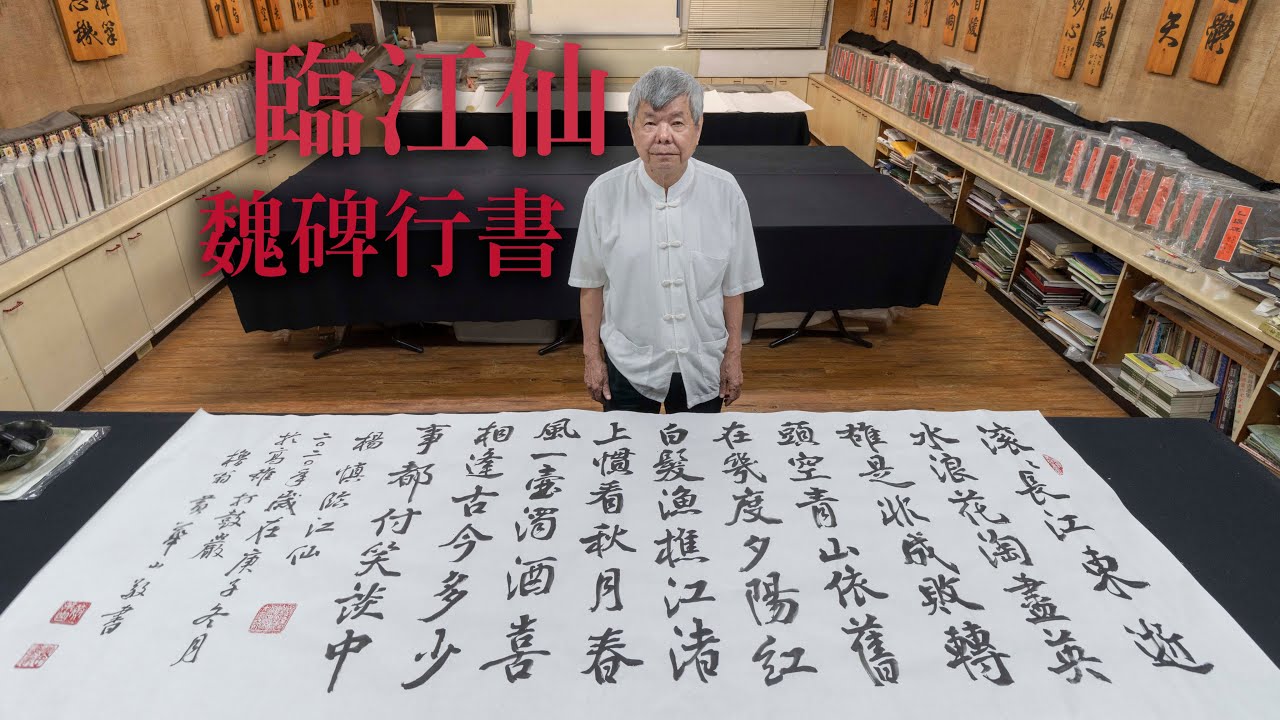 臨江仙
魏碑行書
滾〻長江東逝
水浪花淘盡英
雄是非成敗轉
頭空青山依舊
在幾度夕陽紅
白髮漁樵江渚
上慣看秋月春
風一壺濁酒喜
相逢古今多少
事都付笑談中
楊慎臨江仙
二〇二〇年歲在庚子冬月
於高雄打鼓巖
黃華山敬書
妙心